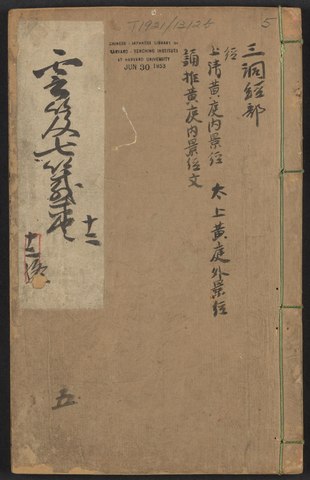 T1921/1312b
5
CHINESE-JAPANESE LIBRARY OF
HARVARD-YENCHING INSTITUTE
AT HARVARD UNIVERSITY
JUN 30 1953
三洞經部
經
上清黃庭內景經 太上黃庭外景經
誦推黃庭內景經文
雲笈七籤
十二
十二
五